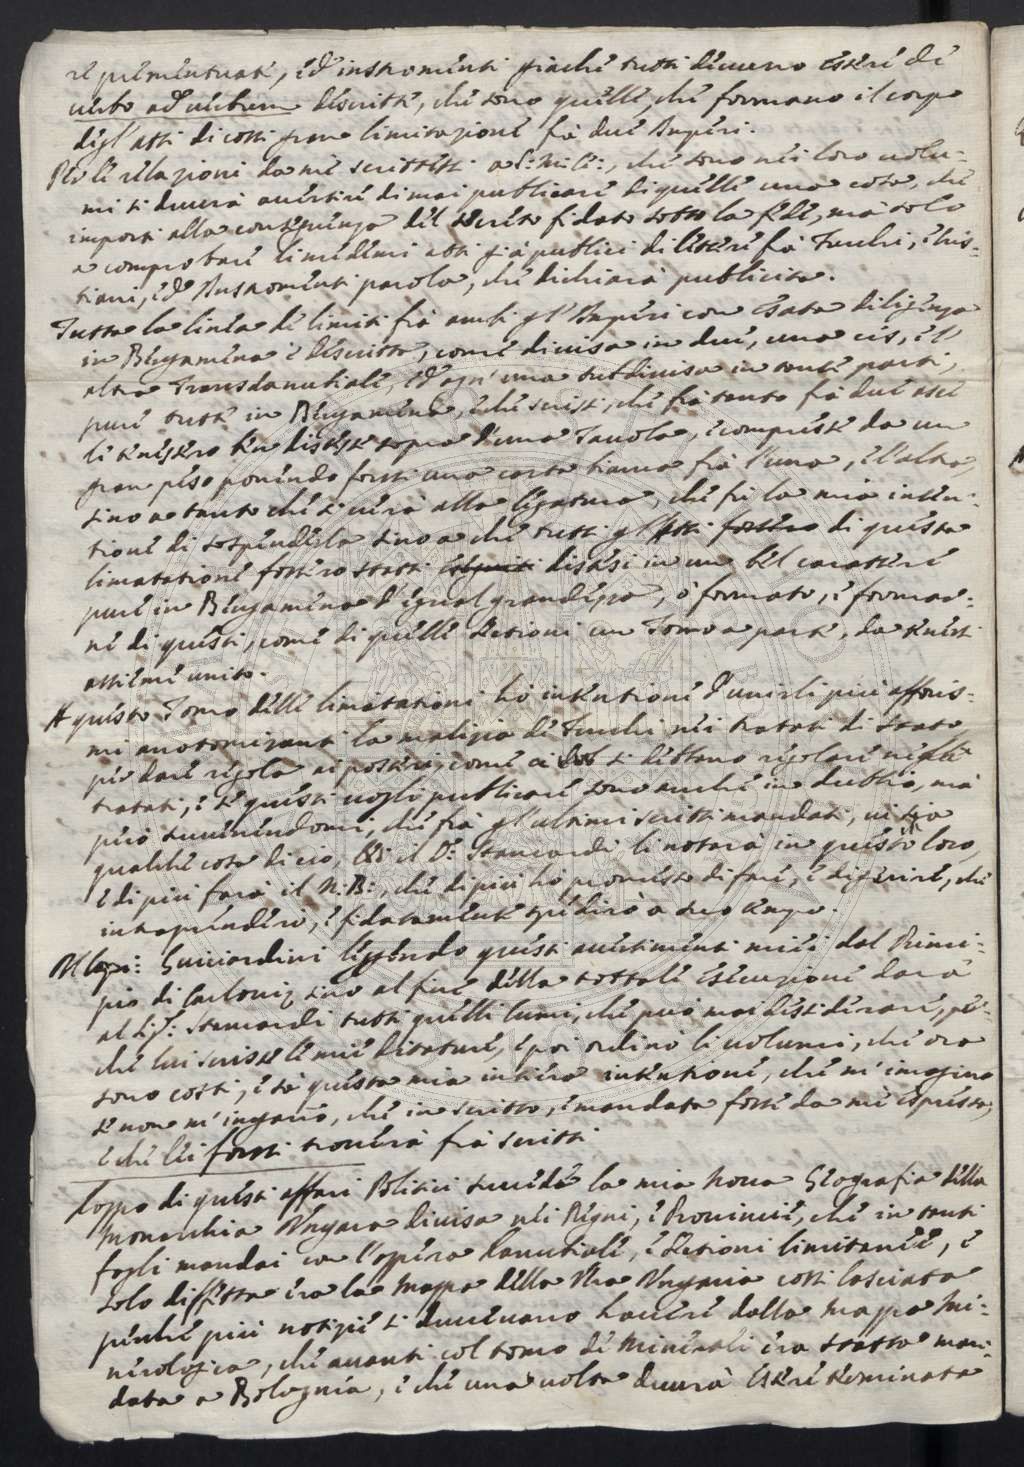 re permentuati, ed' instromenti giachè tutti devero essere di
verbo ad verbum descritti, che sono quelli, che formano il corpo
degl'atti di cotti gran limitazione frà due Imperi.
Per le relazioni da me scritte a S: M: C:, che sono nei loro volu-
mi si dovrà avertire di mai publicare di quelle una cosa, che
importi alla conseguenza del secreto fidato sotto la fede, mà solo
a comprobare li medemi atti già publici di lettere frà Turchi, e Cris-
tiani, ed' Instromenti parola, che dichiara publicità.
Tutta la linea de limiti frà ambi gl'Imperi con esata diligenza
in Bergamena è descritta, come divisa in due, una cis, e l'
altra Transdanubiale, ed' ogn' una subdivisa in tante parti,
pure tutte in Bergamena, e che scrissi, che frà tanto frà due asse
li tenessero ben distese sopra d'una Tavola, e compresse da un
gran peso ponendo forsi una carta bianca frà l'una, e l'altra,
sino a tanto che si verà alla ligatura, che fù la mia inten-
tione di sospenderla sino a che tutti gl'Atti fossero di questa
limitatione fossero statti distesi in un bel carattere
pure in Bergamena d'egual grandezza, ò formato, e formar-
ne di questi, come di quelle Sectioni un Tomo a parte, da tenersi
assieme unito.
A questo Tomo delle limitationi hò intentione d'unirli più afforis-
mi anotomizanti la malizia de Turchi nei tratati di stato
per dare regola ai posteri, come si debbano regolare negli
tratati, e se questi vogli publicare sono anche in dubbio, mà
però sovenendomi, che frà gl'ultimi scritti mandati, vi sia
qualche cosa di ciò, il D.r Stancardi li notarà in questo loro,
e di più farà il N:B:, che di più hò promesso di fare, e digerire, che
intraprenderò, e fidatamente spedirò a suo tempo.
Il Guicciardini leggendo questi avertimenti miei dal Princi-
pio di Carloviz sino al fine della tottale esecuzione darà
al Sig.r Stancardi tutti quelli lumi, che può mai desiderare, per-
che lui scrisse le mie dittature, e poi ordinò li volumi, che ora
sono costì, e sà questa mia intiera intentione, che m'imagino
se non m'inganno, che in scritto, e mandata fosse da me espressa,
e che lei forsi troverà frà scritti
Doppo di questi affari Politici succede la mia nova Geografia della
Monarchia Ungara divisa nei Regni, e Provincie, che in tanti
fogli mandai con l'opera Danubiale, e Sectioni limitanee, e
solo diffetta era la Mappa della Ungaria costì lasciata
perchè più notizie si dovevano havere dalla Mappa Mi-
nerologica, che avanti col tomo de Minerali era statta man-
data a Bologna, e che una volta dovrà essere terminata